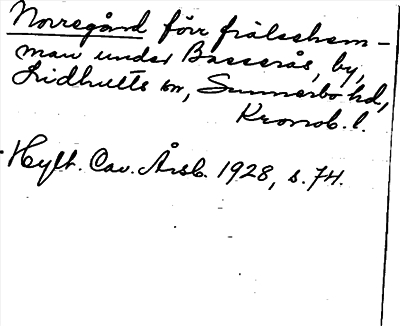 Norregård förr frälsehem-
man under Basserås, by,
Lidhults sn, Sunnerbo hd,
Kronob. l.
Hylt. Cav. Årsb. 1928, s. 74.